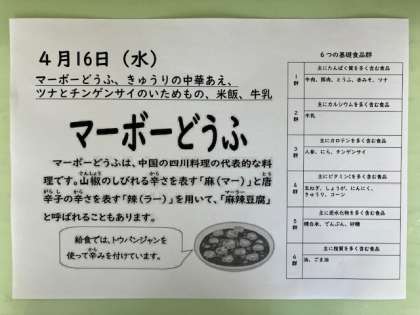 4月16日（水）
マーボーどうふ、きゅうりの中華あえ、
ツナとチンゲンサイのいためもの、米飯、牛乳
マーボーどうふ
マーボーどうふは、中国の四川料理の代表的な料
理です。山椒のしびれる辛さを表す「麻（マー）」と唐
さんしょう から とう
辛子の辛さを表す「辣（ラー）」を用いて、「麻辣豆腐」
がらし から マーラー
と呼ばれることもあります。
給食では、トウバンジャンを
使って辛みを付けています。
から
6つの基礎食品群
1群
主にたんぱく質を多く含む食品
牛肉、豚肉、とうふ、赤みそ、ツナ
2群
主にカルシウムを多く含む食品
牛乳
3群
主にカロテンを多く含む食品
人参、にら、チンゲンサイ
4群
主にビタミンCを多く含む食品
玉ねぎ、しょうが、にんにく、
きゅうり、コーン
5群
主に炭水化物を多く含む食品
精白米、でんぷん、砂糖
6群
主に脂質を多く含む食品
油、ごま油